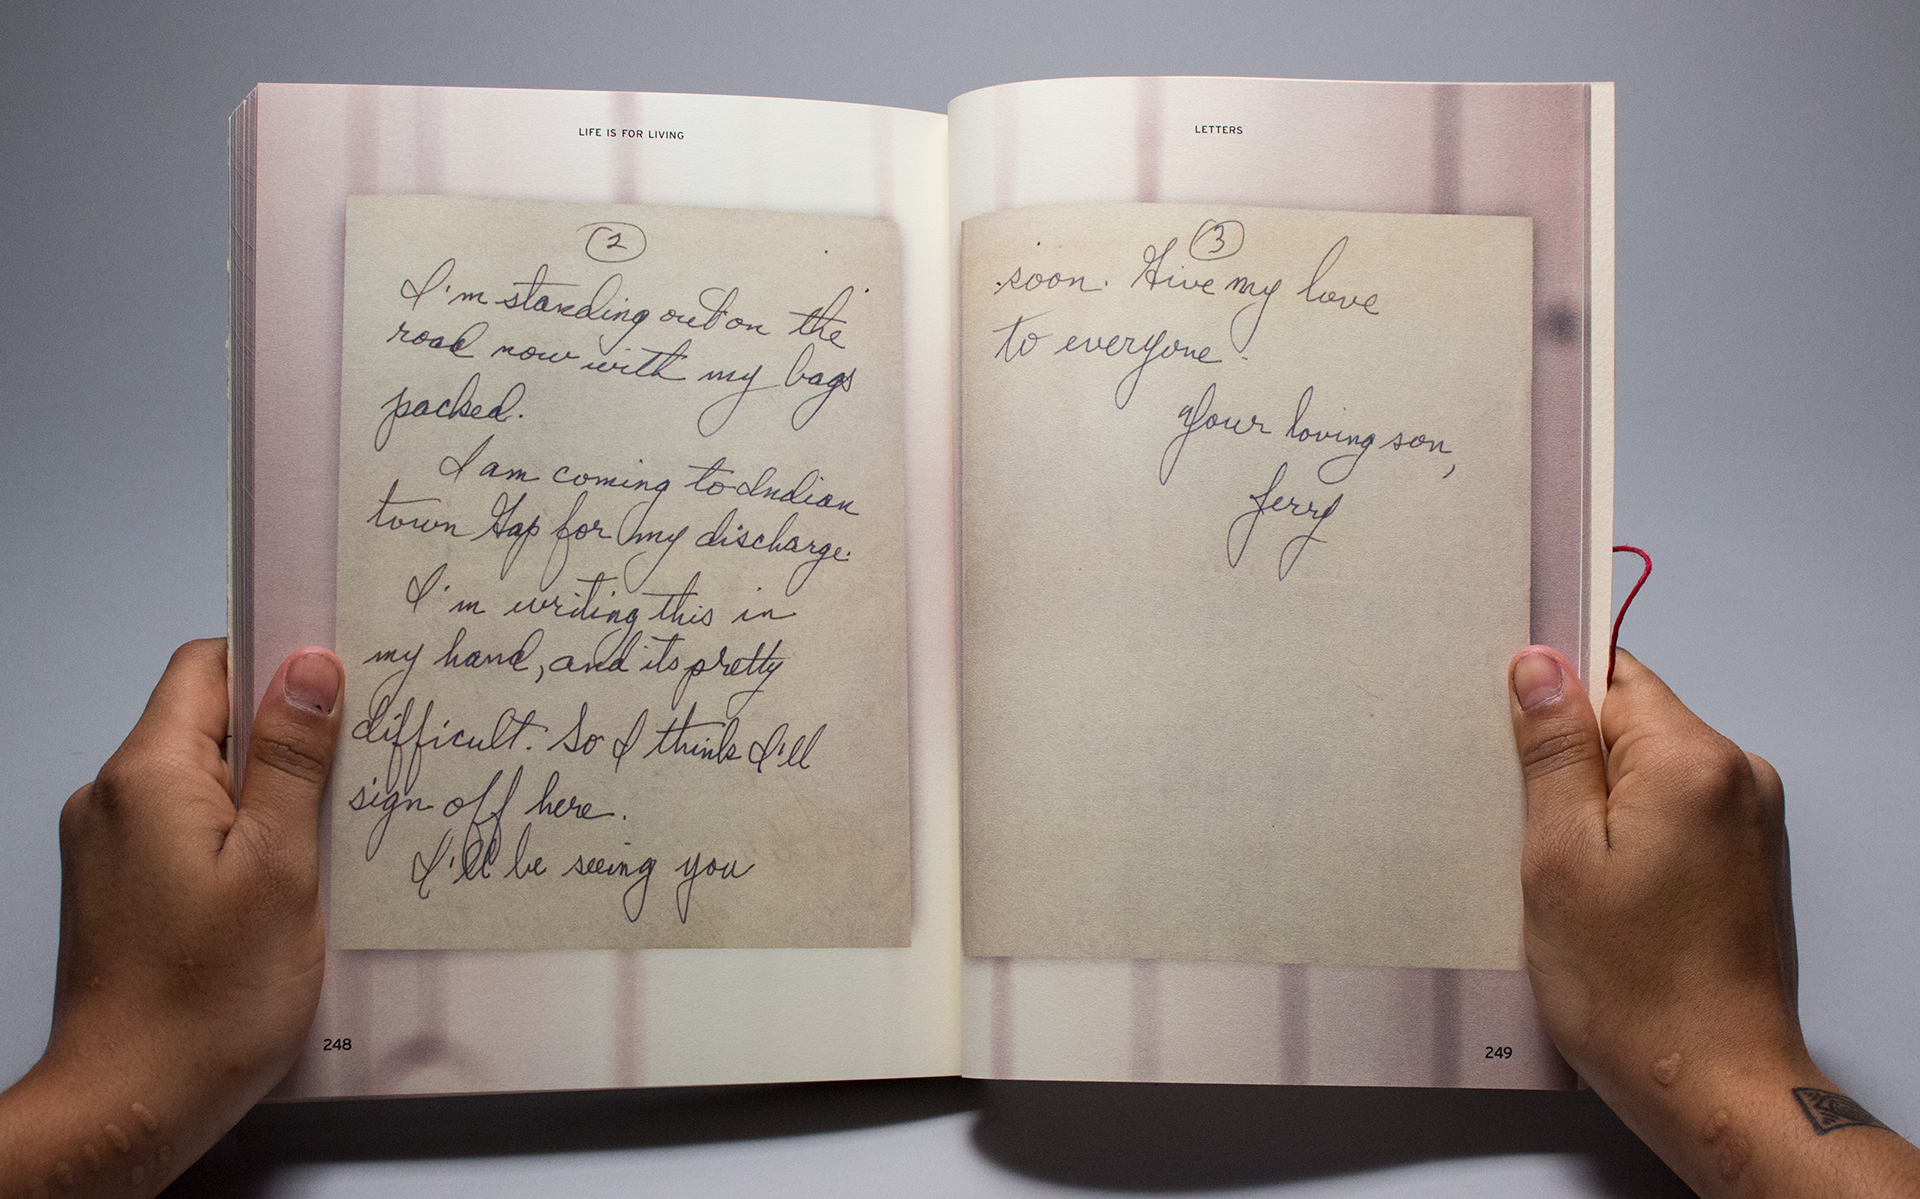 LIFE IS FOR LIVING
2
I'm standing out on the
road now with my bags
packed.
I am coming to Indian
town Gap for my discharge.
I'm writing this in
my hand, and its pretty
difficult. So I think I'll
sign off here.
I'll be seeing you
248
LETTERS
3
soon. Give my love
to everyone.
Your loving son,
Jerry
249